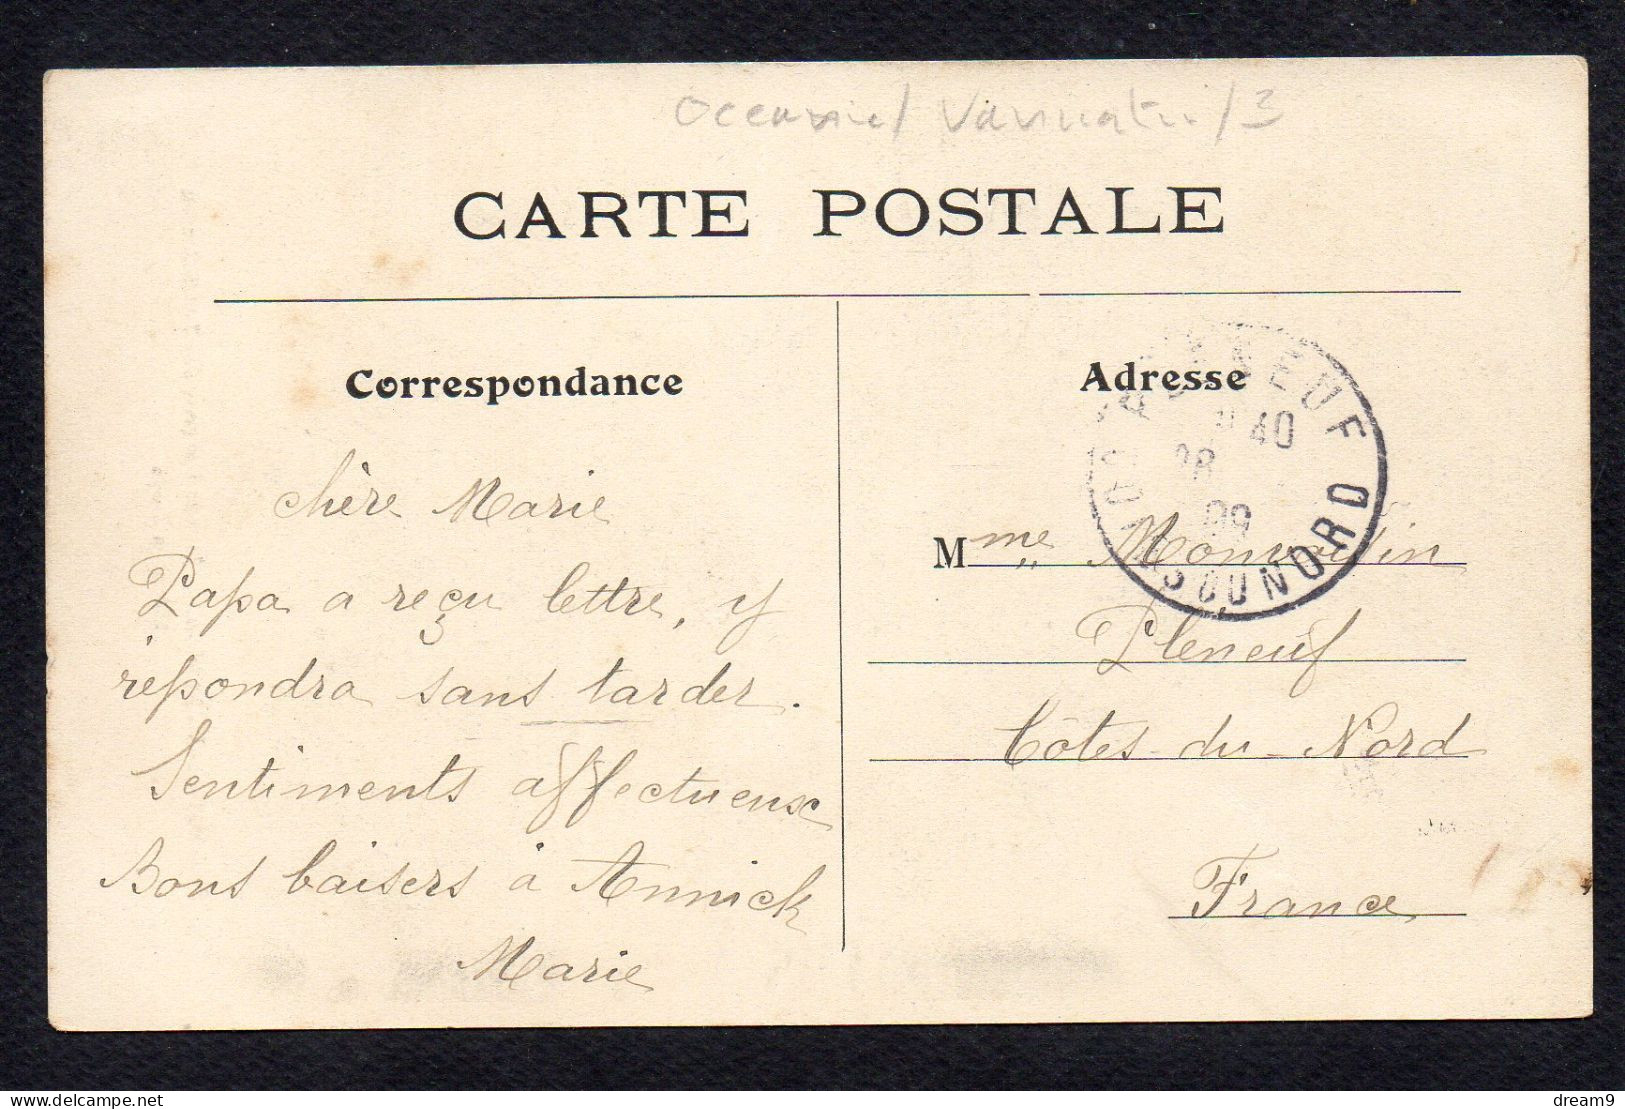 Oceanie/ Vanuatu/3
CARTE POSTALE
Correspondance
Adresse
PLENEUF
40
CÔTES DU NORD
chère Marie
Papa a reçu lettre, y
répondra sans tarder.
Sentiments affectueux
Bons baisers à Annick
Marie
Mme
Pleneuf
Côtes-du-Nord
France
delcampe.net
dream9